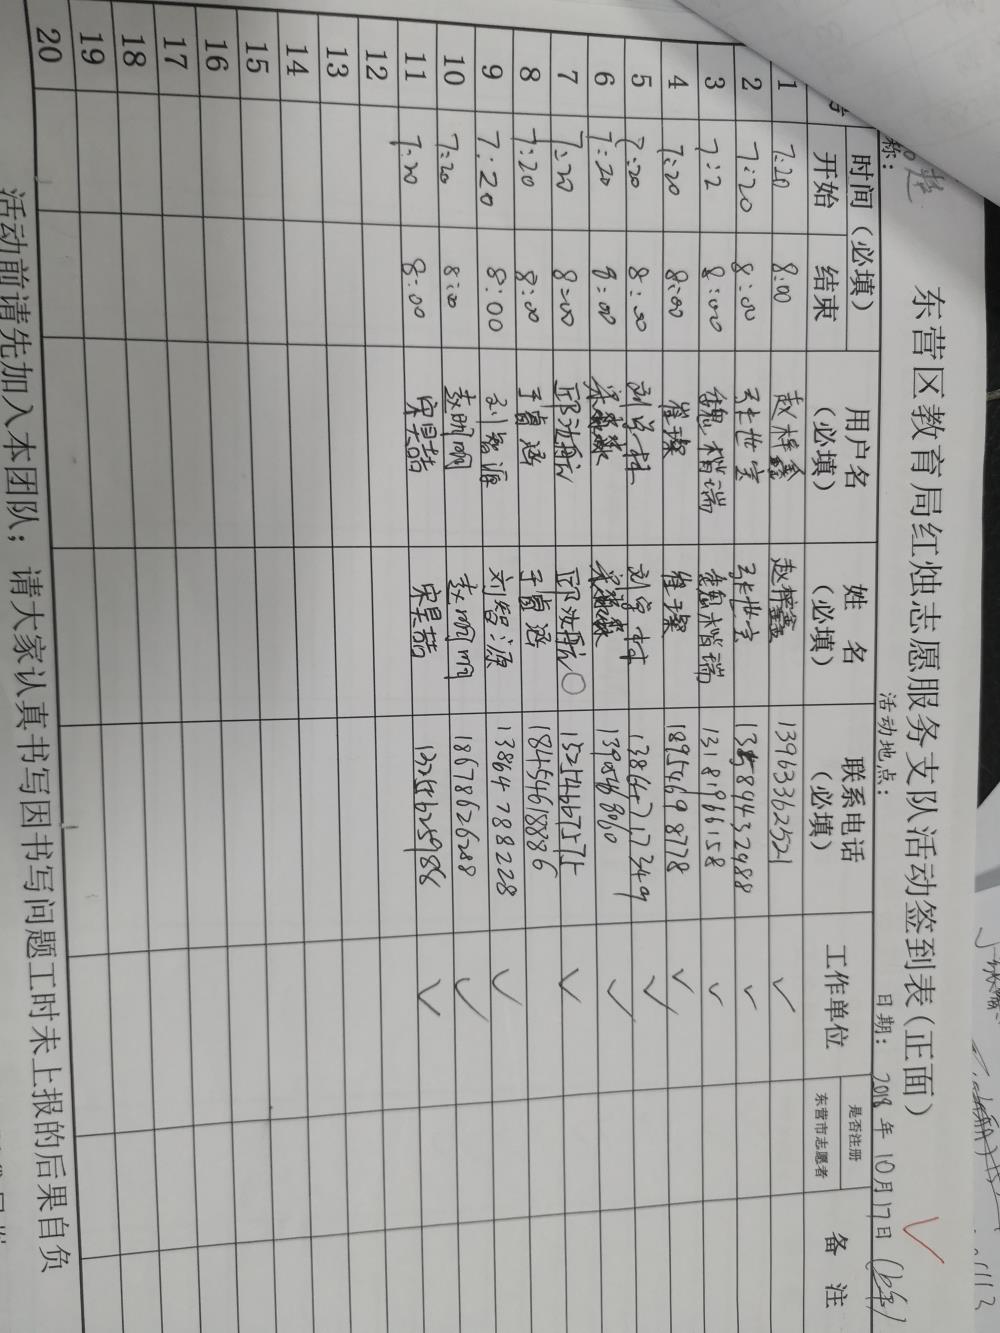 东营区教育局红烛志愿服务支队活动签到表(正面)
称: 活动地点: 日期: 2018年10月17日
时间(必填) 用户名(必填) 姓 名(必填) 联系电话(必填) 工作单位 是否注册东营市志愿者 备 注
开始 结束
1 7:20 8:00 赵梓鑫 赵梓鑫 13963362521 ✓
2 7:20 8:00 张世宝 张世宝 ✓
3 7:2 8:00 魏楷瑞 魏楷瑞 13181966158 ✓
4 7:20 8:00 崔璨 崔璨 18954698778 ✓
5 7:20 8:00 13864717349 ✓
6 7:20 8:00 ✓
7 7:20 8:00 邱汝航 邱汝航 15254667575 ✓
8 7:20 8:00 于睿涵 于睿涵 18454618886
9 7:20 8:00 刘智源 刘智源 13864788228 ✓
10 7:20 8:00 赵明明 赵明明 18678626288 ✓
11 7:20 8:00 宋昊喆 宋昊喆 13254625988 ✓
12
13
14
15
16
17
18
19
20
活动前请先加入本团队; 请大家认真书写因书写问题工时未上报的后果自负